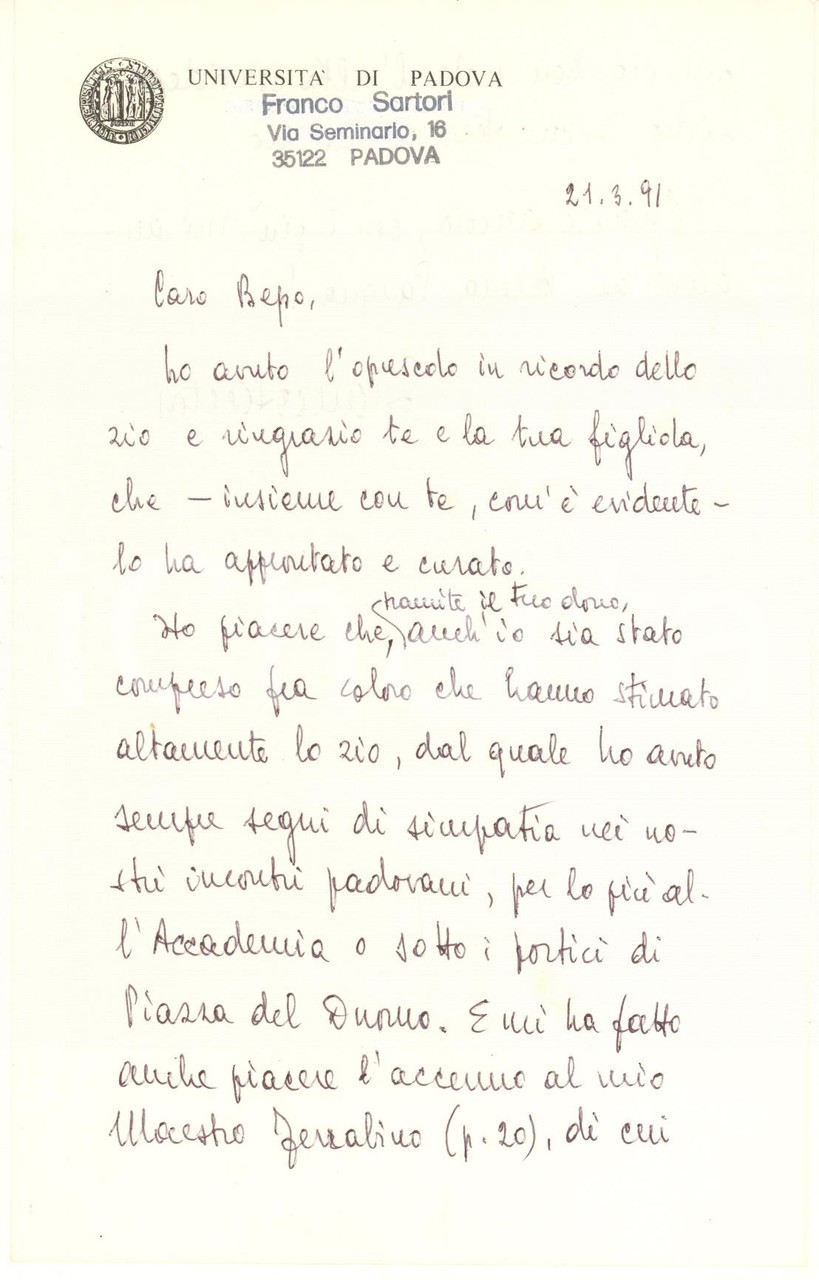 UNIVERSITA' DI PADOVA
Franco Sartori
Via Seminario, 16
35122 PADOVA
21.3.91
Caro Bepo,
ho avuto l'opuscolo in ricordo dello
zio e ringrazio te e la tua figliola,
che – insieme con te, com'è evidente –
lo ha approntato e curato.
tramite il tuo dono,
Ho piacere che, anch'io sia stato
compreso fra coloro che hanno stimato
altamente lo zio, dal quale ho avuto
sempre segni di simpatia nei no-
stri incontri padovani, per lo più al-
l'Accademia o sotto i portici di
Piazza del Duomo. E mi ha fatto
anche piacere l'accenno al mio
Maestro Ferrabino (p. 20), di cui